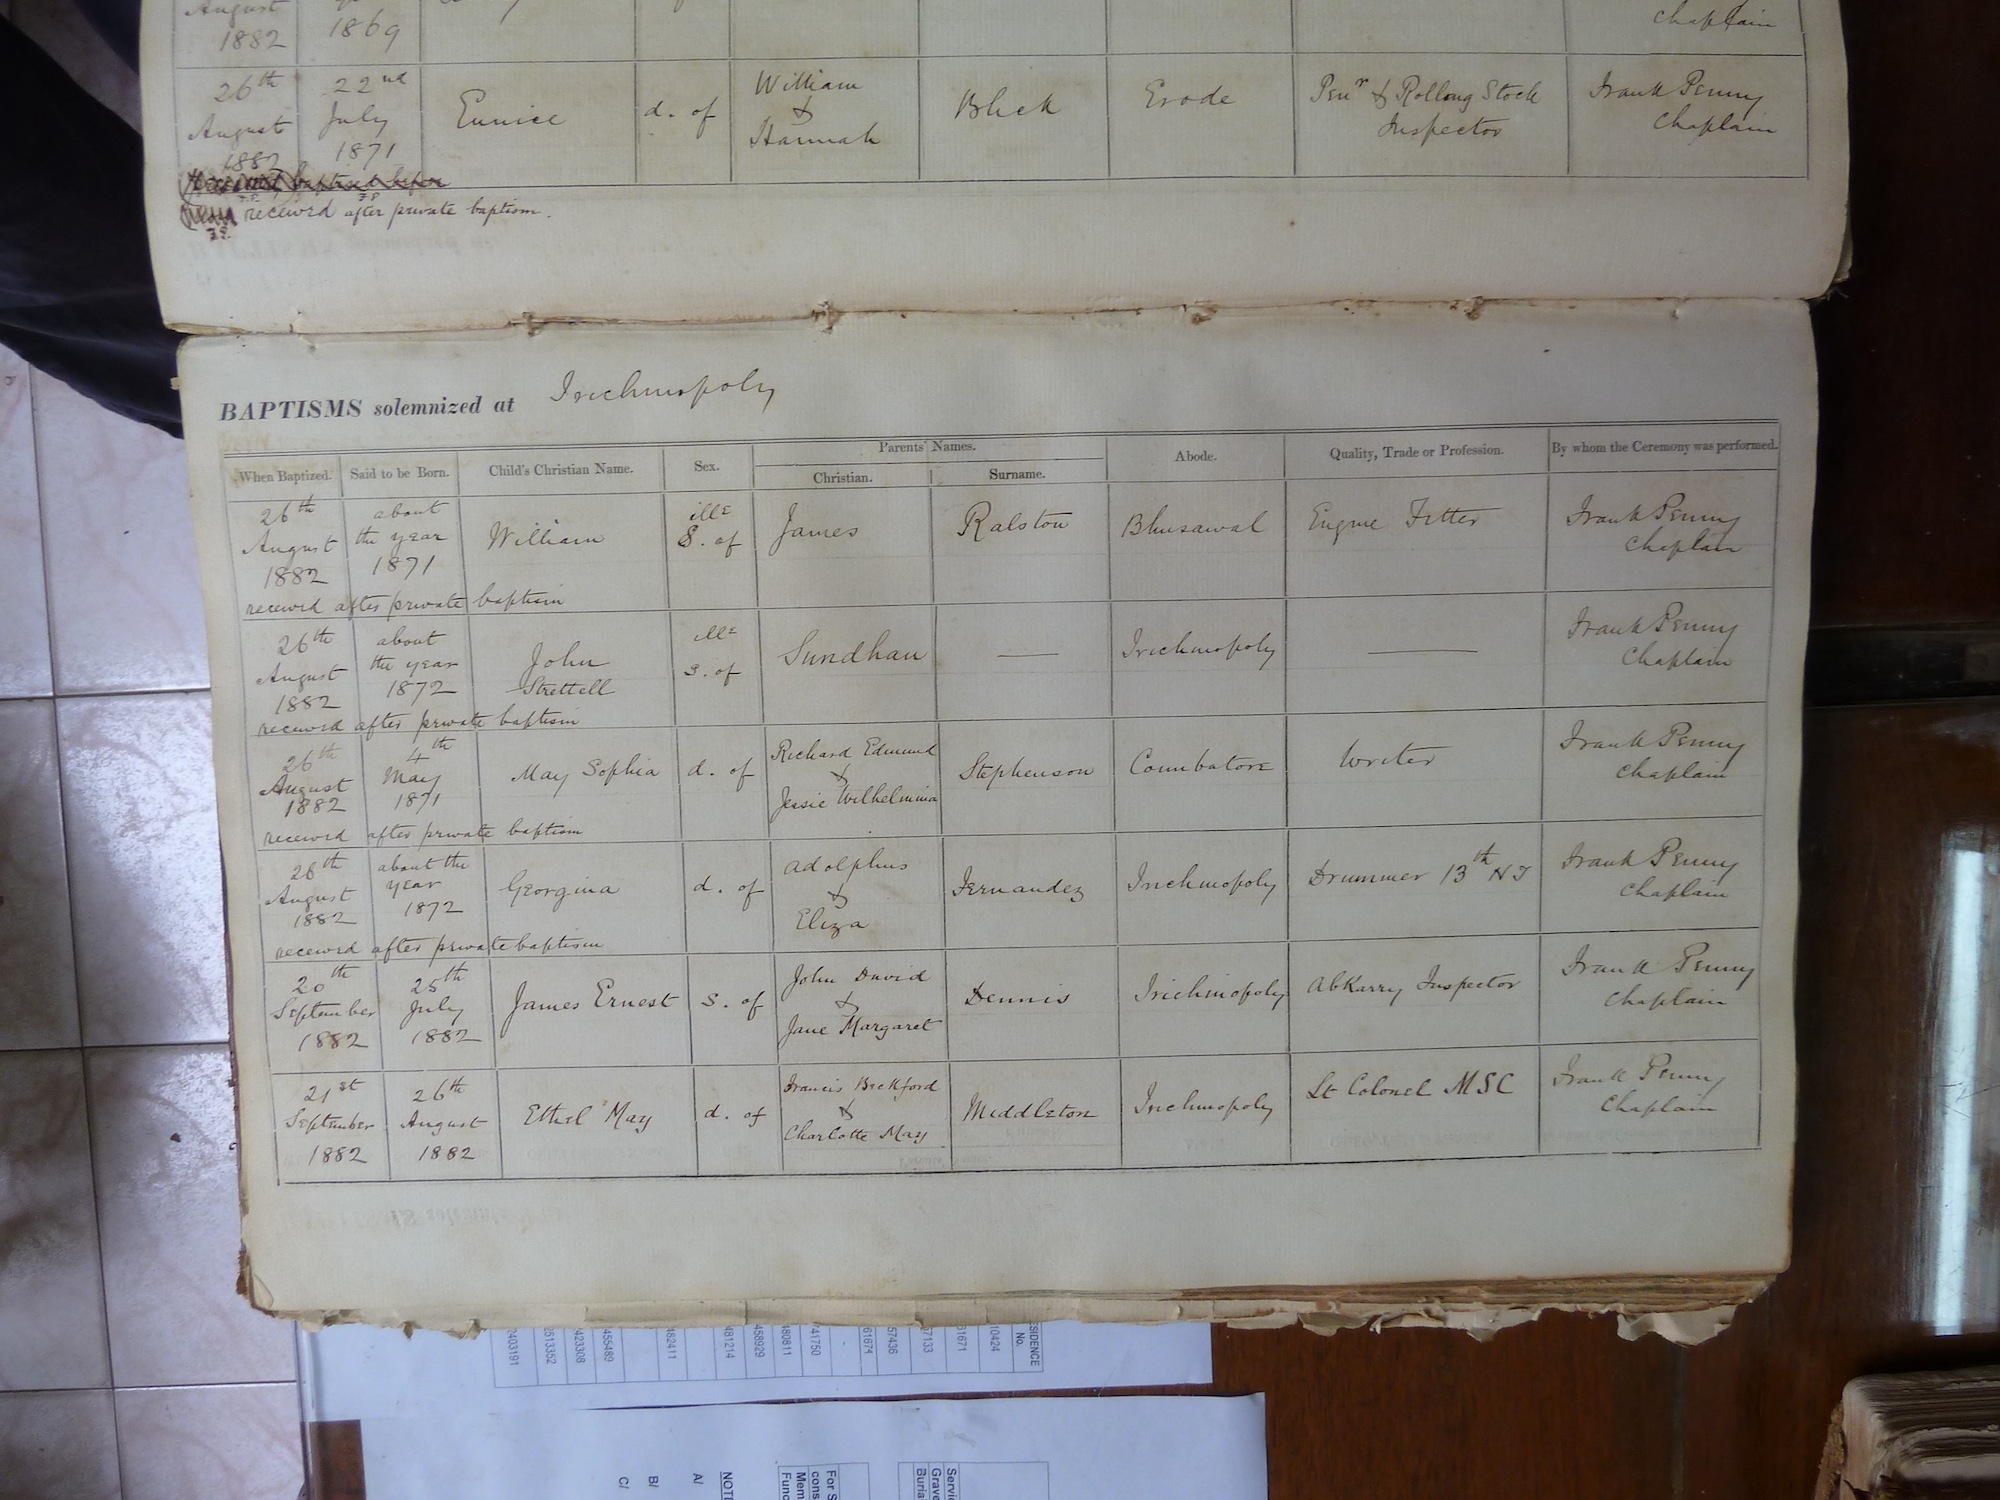 August
1882
1869
Chaplain
26th August 1882
22nd July 1871
Eunice
d. of
William & Hannah
Blick
Erode
Penr & Rolling Stock Inspector
Frank Penny Chaplain
baptised before
received after private baptism.
BAPTISMS solemnized at Trichinopoly
When Baptized. Said to be Born. Child's Christian Name. Sex. Parents' Names. Abode. Quality, Trade or Profession. By whom the Ceremony was performed.
Christian. Surname.
26th August 1882
about the year 1871
William
ille S. of
James
Ralston
Bhusawal
Engine Fitter
Frank Penny Chaplain
received after private baptism
26th August 1882
about the year 1872
John Strettell
ille s. of
Sundhan
—
Trichinopoly
—
Frank Penny Chaplain
received after private baptism
26th August 1882
4th May 1871
May Sophia
d. of
Richard Edmund & Jessie Wilhelmina
Stephenson
Coimbatore
Writer
Frank Penny Chaplain
received after private baptism
26th August 1882
about the year 1872
Georgina
d. of
Adolphus & Eliza
Fernandez
Trichinopoly
Drummer 13th NI
Frank Penny Chaplain
received after private baptism
20th September 1882
25th July 1882
James Ernest
s. of
John David & Jane Margaret
Dennis
Trichinopoly
Abkarry Inspector
Frank Penny Chaplain
21st September 1882
26th August 1882
Ethel May
d. of
Francis Beckford & Charlotte May
Middleton
Trichinopoly
Lt Colonel MSC
Frank Penny Chaplain
ESIDENCE No.
10424
61671
57436
61674
-
741750
480811
458929
481214
482411
455489
423308
2613352
2403191
NOTE
A/
B/
C/